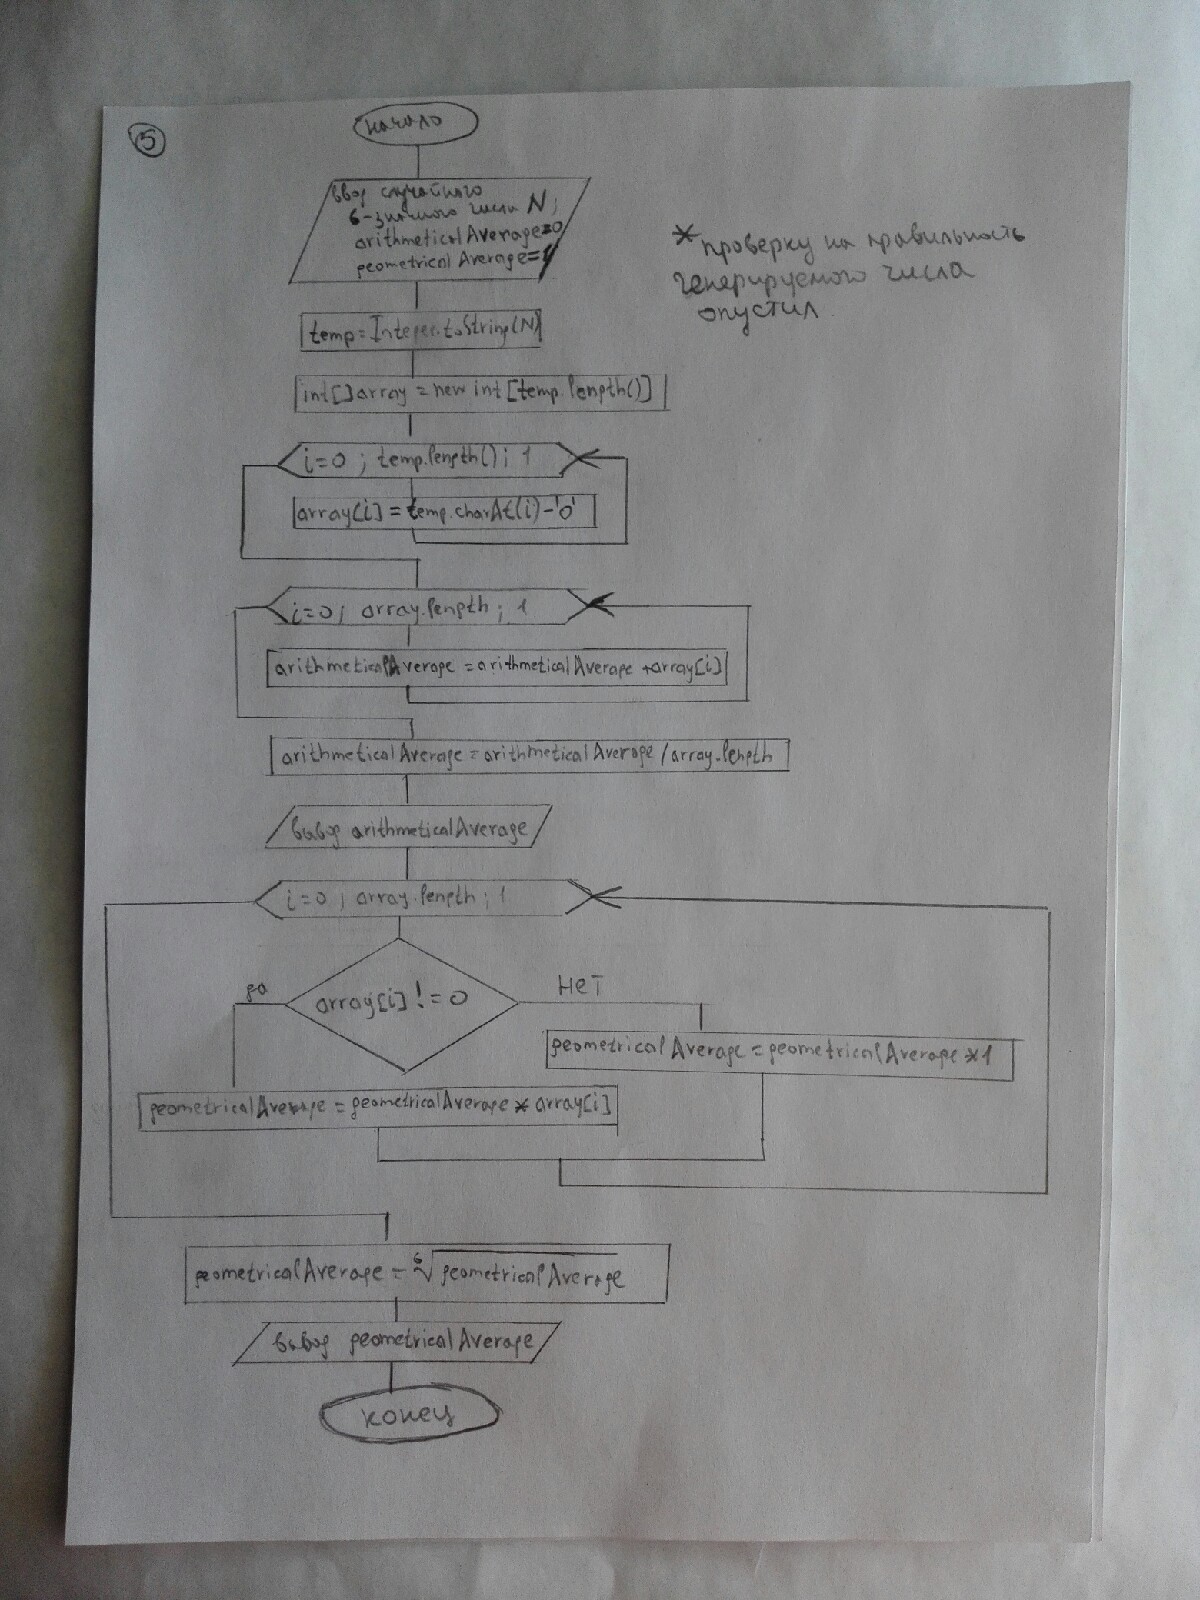 5
начало
ввод случайного
6-значного числа N;
arithmeticalAverage=0
geometricalAverage=1
* проверку на правильность
генерируемого числа
опустил
temp=Integer.toString(N)
int[]array = new int[temp.length()]
i=0 ; temp.length() ; 1
array[i] = temp.charAt(i)-'0'
i=0; array.length ; 1
arithmeticalAverage = arithmeticalAverage +array[i]
arithmeticalAverage = arithmeticalAverage /array.length
вывод arithmeticalAverage
i=0 ; array.length ; 1
да
array[i] != 0
нет
geometricalAverage = geometricalAverage *1
geometricalAverage = geometricalAverage * array[i]
geometricalAverage = 6√geometricalAverage
вывод geometricalAverage
конец